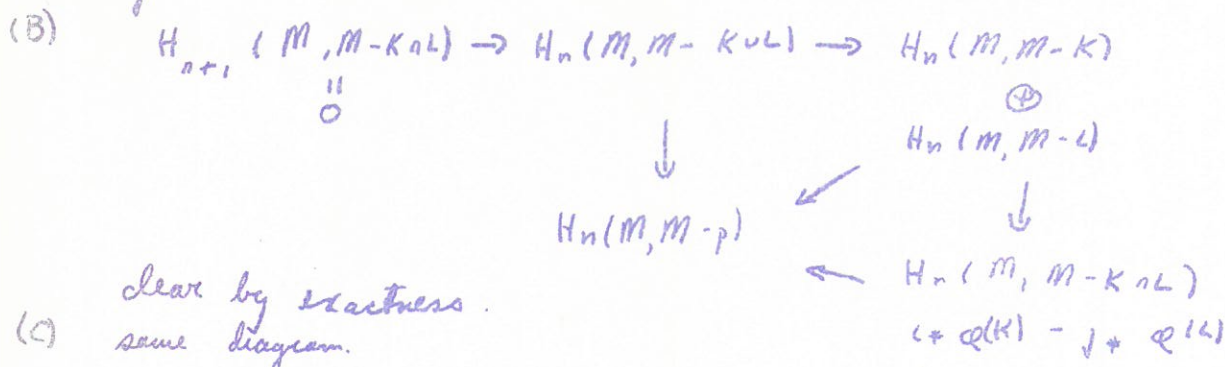 (B) H_{n+1} (M, M-K∩L) → H_n(M, M-K∪L) → H_n(M, M-K)
=
0
⊕
H_n(M, M-L)
↓ ↙ ↓
H_n(M, M-p) ← H_n(M, M-K∩L)
clear by exactness. i_* φ(K) - j_* φ(L)
(C) same diagram.